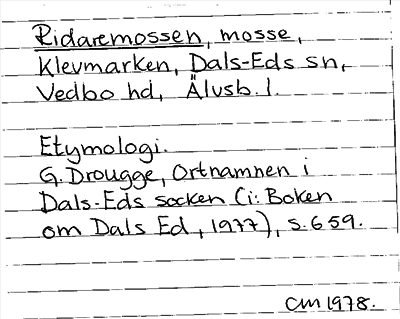 Ridaremossen, mosse,
Klevmarken, Dals-Eds sn,
Vedbo hd, Älvsb. l.
Etymologi.
G. Drougge, Ortnamnen i
Dals-Eds socken (i: Boken
om Dals Ed, 1977), s. 659.
CM 1978.